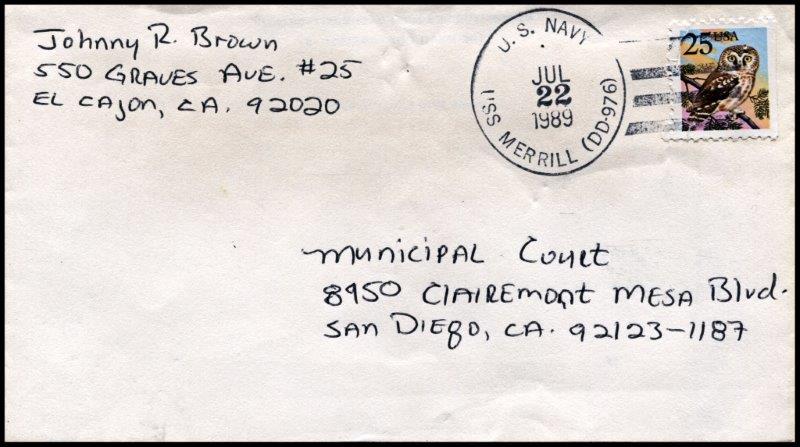 Johnny R. Brown
550 GRAVES AVE. #25
EL CAJON, CA. 92020
U.S. NAVY
JUL
22
1989
USS MERRILL (DD-976)
25 USA
Municipal Court
8950 CLAIREMONT MESA Blvd.
SAN DIEGO, CA. 92123-1187